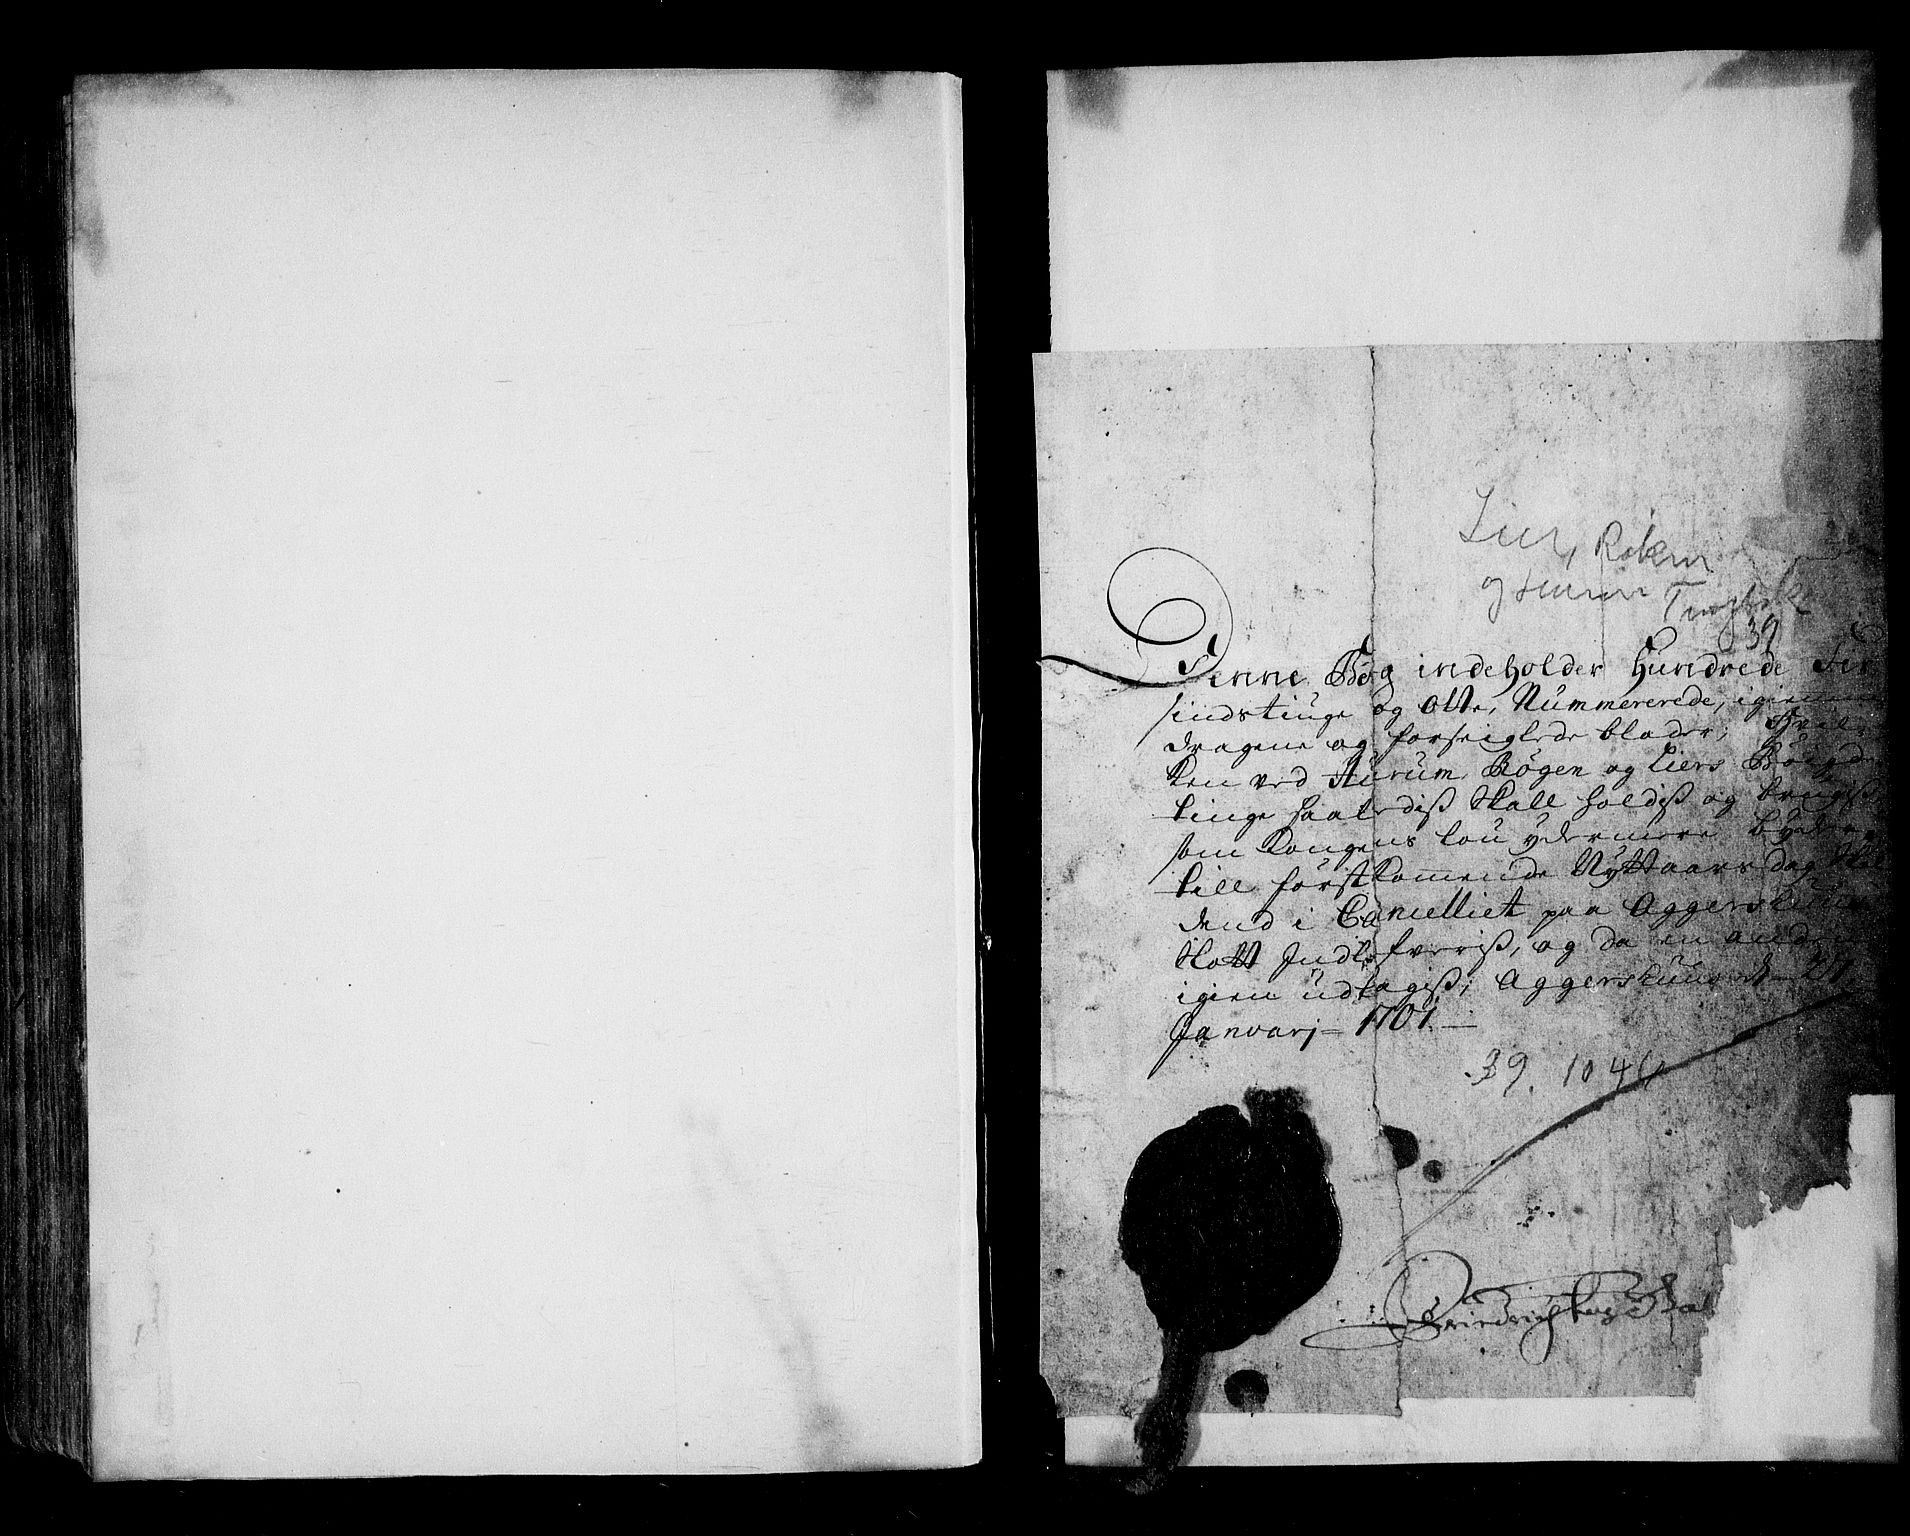 Lier, Røken
og Hurum Tingbok
39
Denne Bog indeholder Hundrede Fir
sindstiuge og otte, Nummererede, igiennem
dragene og forseiglede blader; Hvil-
ken ved Hurum, Røgen og Liers Bøigde
tinge saalediß skall holdiß og brugiß
som Kongens lou ydermere byder,
till førstkomende Nyttaarsdag skal
dend i Cancelliet paa Aggershuus
Slott Indlefveriß, og da en anden
igien udtagiß; Aggershuus d. 27
Januarj 1701.
39. 104
Friedrich